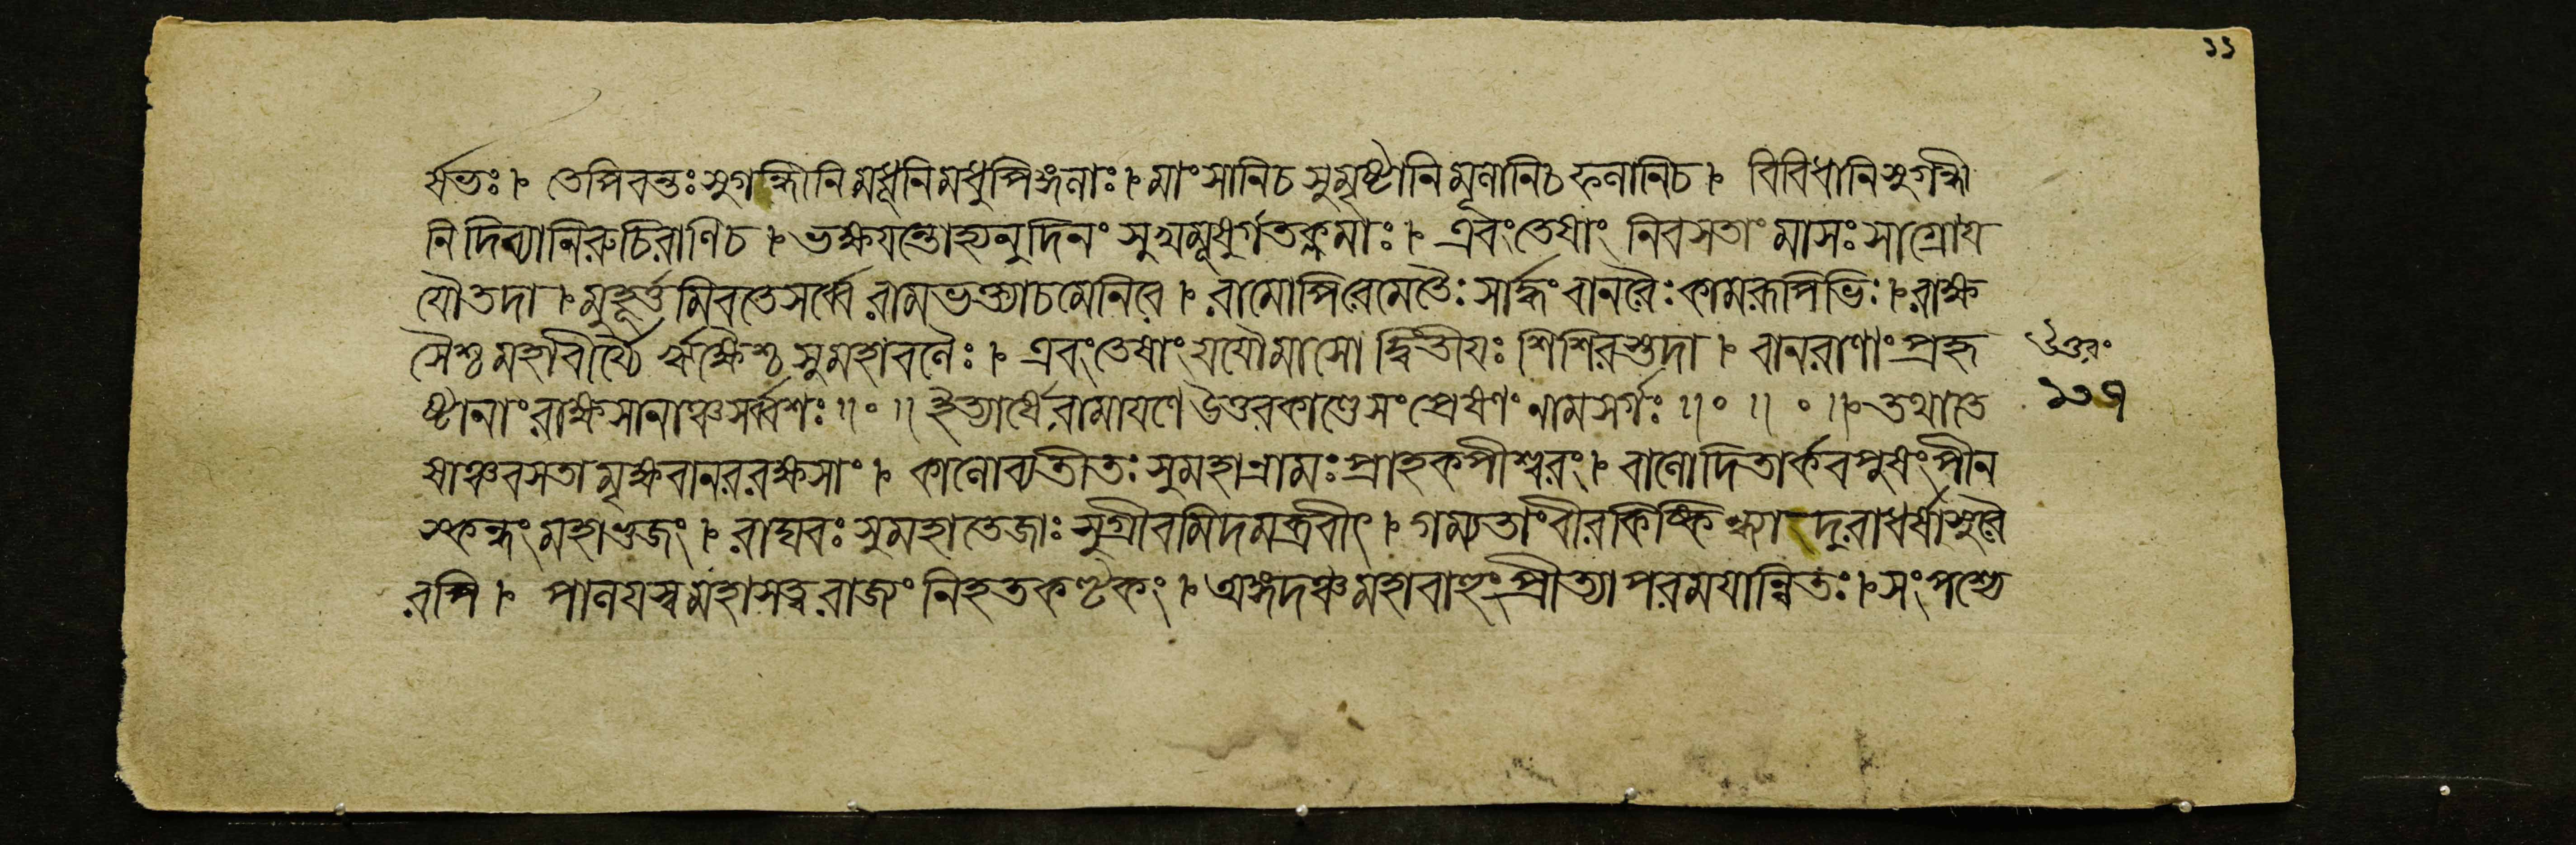 ১১
র্ষভঃ। তেপিবন্তঃসুগন্ধীনি মধূনিমধুপিঙ্গলাঃ। মাংসানিচ সুমৃষ্টানি মূলানিচ ফলানিচ। বিবিধানি সুগন্ধী
নি দিব্যানিরুচিরাণিচ। ভক্ষযন্তোহ্যনুদিনং সুখমূষুর্গতক্লমাঃ। এবংতেষাং নিবসতাং মাসঃ সাগ্রোয
যৌতদা। মুহূর্ত্তমিবতেসর্ব্বে রামভক্ত্যাচমেনিরে। রামোপিরেমেতৈঃ সার্দ্ধংবানরৈঃ কামরূপিভিঃ। রাক্ষ
সৈশ্চ মহাবীর্য্যৈ র্ঋক্ষৈশ্চ সুমহাবলৈঃ। এবংতেষাং যযৌমাসো দ্বিতীযঃ শিশিরস্তদা। বানরাণাং প্রহৃ
ষ্টানাং রাক্ষসানাঞ্চসর্ব্বশঃ॥০॥ ইত্যার্ষে রামাযণে উত্তরকাণ্ডে সংপ্রেষণং নামসর্গঃ॥০॥০॥ তথাতে
ষাঞ্চবসতামৃক্ষবানররক্ষসাং। কালোব্যতীতঃ সুমহান্রামঃ প্রাহকপীশ্বরং। বালোদিতার্কবপুষংপীন
স্কন্ধং মহাভুজং। রাঘবঃ সুমহাতেজাঃ সুগ্রীবমিদমব্রবীৎ। গম্যতাংবীরকিষ্কিন্ধ্যা দুরাধর্ষাসুরৈ
রপি। পালযস্বমহাসত্ত্ব রাজ্যং নিহতকণ্টকং। অঙ্গদঞ্চমহাবাহুংপ্রীত্যাপরমযান্বিতঃ। সংপশ্যে
উত্তরং
১০৭